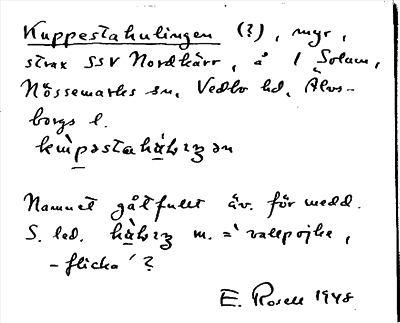 Kuppestahulingen (?), myr,
strax SSV Nordkärr, å 1 Solum,
Nössemarks sn, Vedbo hd, Älvs-
borgs l.
Namnet gåtfullt äv. för medd.
S. led. m. = 'vallpojke,
-flicka'?
E. Rosell 1948